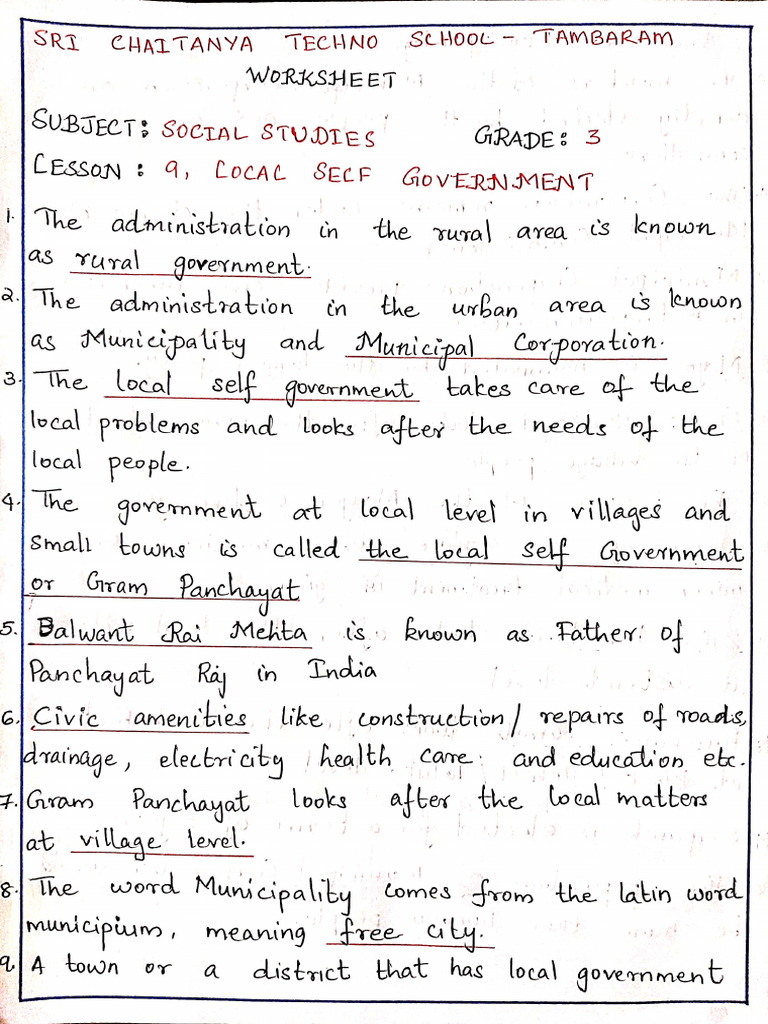 SRI CHAITANYA TECHNO SCHOOL - TAMBARAM
WORKSHEET
SUBJECT: SOCIAL STUDIES GRADE: 3
LESSON: 9, LOCAL SELF GOVERNMENT
1. The administration in the rural area is known
as rural government.
2. The administration in the urban area is known
as Municipality and Municipal Corporation.
3. The local self government takes care of the
local problems and looks after the needs of the
local people.
4. The government at local level in villages and
small towns is called the local self Government
or Gram Panchayat
5. Balwant Rai Mehta is known as Father of
Panchayat Raj in India
6. Civic amenities like construction/ repairs of roads,
drainage, electricity health care and education etc.
7. Gram Panchayat looks after the local matters
at village level.
8. The word Municipality comes from the latin word
municipium, meaning free city.
9. A town or a district that has local government